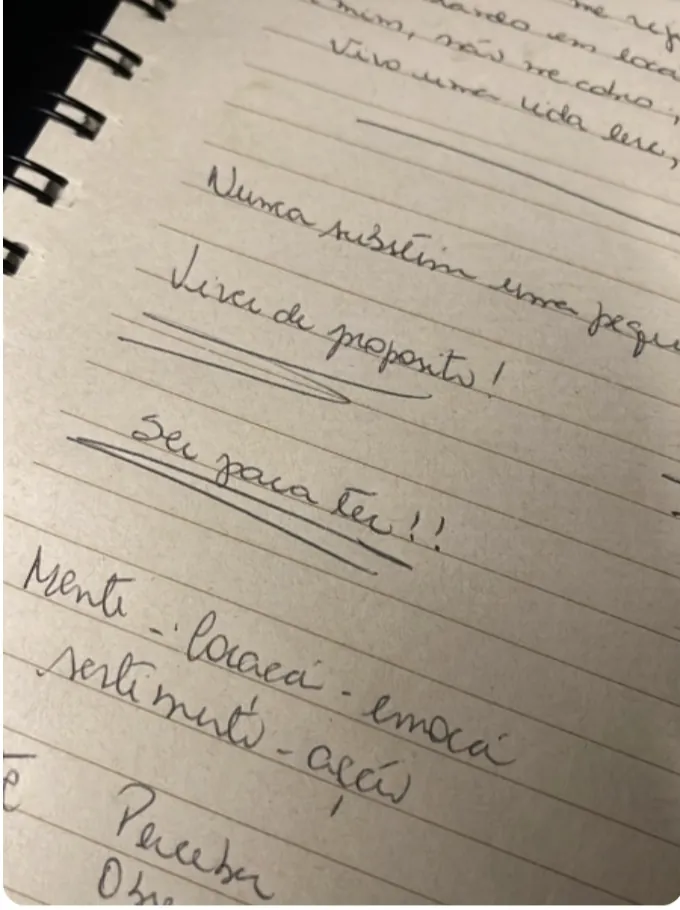 me
em
mim, não me cobro,
Vivo uma vida leve,
Nunca subestim uma pequ
Viver de proposito!
Ser para ter!!
Mente - Coração - emoçã
sentimento - ação
Perceber
Obse